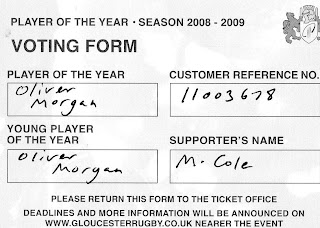 PLAYER OF THE YEAR • SEASON 2008 - 2009
VOTING FORM
PLAYER OF THE YEAR
Oliver
Morgan
CUSTOMER REFERENCE NO.
11003678
YOUNG PLAYER
OF THE YEAR
Oliver
Morgan
SUPPORTER'S NAME
M. Cole
PLEASE RETURN THIS FORM TO THE TICKET OFFICE
DEADLINES AND MORE INFORMATION WILL BE ANNOUNCED ON
WWW.GLOUCESTERRUGBY.CO.UK NEARER THE EVENT